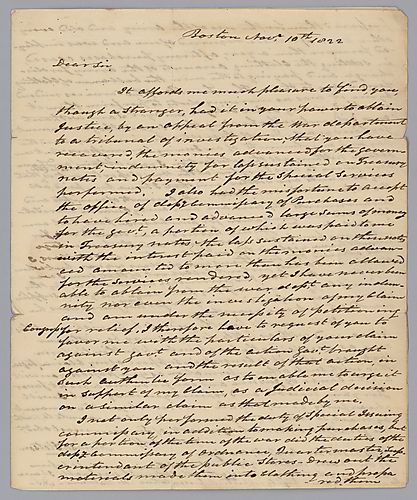 Boston Nov.r 10th 1822
Dear Sir,
It affords me much pleasure to find you,
though a stranger, had it in your power to obtain
Justice, by an appeal from the War department
to a tribunal of investigation, that you have
recovered, the monies advanced for the govern
ment, indemnity for loss sustained on Treasury
notes and payment for the Special Services
performed. I also had the misfortune to accept
the office of dep.y Commissary of Purchases and
to have hired and advanced large sums of money
for the gov.t, a portion of which was paid to me
in Treasury notes, the loss sustained on these notes
with the interest paid on the monies advan
ced amounted to more than has been allowed
for the services rendered, yet I have never been
able to obtain from the war dep.t any indem
nity nor even the investigation of my claim
and am under the necessity of petitioning
Congress for relief. I therefore have to request of you to
favor me with the particulars of your claim
against gov.t and of the action gov.t brought
against you and the result of that action, in
such authentic form as to enable me to urge it
in support of my claim, as a Judicial decision
on a similar claim as that made by me.
I not only performed the duty of Special Issuing
commissary in addition to making purchases, but
for a portion of the time of the war did the duties of the
dep.y commissary of ordnance, Quarter master, Supe
rintendant of the public Stores, drew out the
materials made them into clothing and prepa
red them